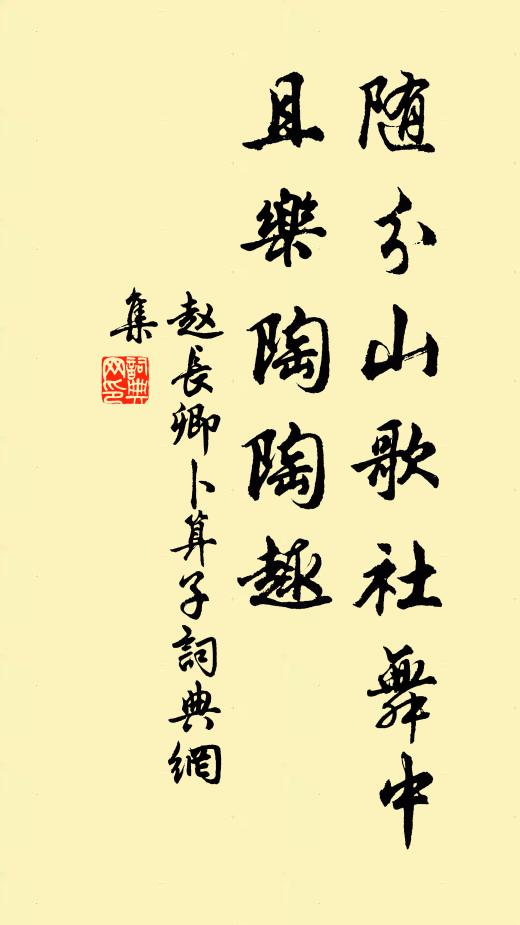 随分山歌社舞中
且樂陶陶趣
赵長卿卜算子詞典網
集
詞典网印